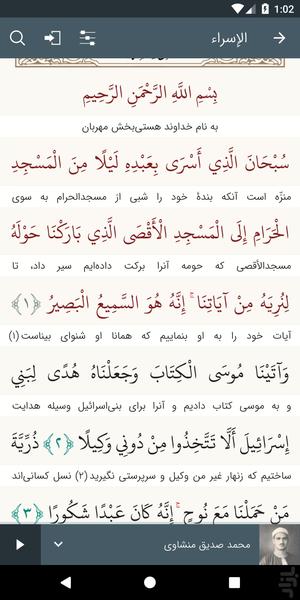 1:02
الإسراء
بِسْمِ اللَّهِ الرَّحْمَنِ الرَّحِيمِ
به نام خداوند هستی‌بخش مهربان
سُبْحَانَ الَّذِي أَسْرَى بِعَبْدِهِ لَيْلًا مِنَ الْمَسْجِدِ
منزّه است آنکه بندهٔ خود را شبی از مسجدالحرام به سوی
الْحَرَامِ إِلَى الْمَسْجِدِ الْأَقْصَى الَّذِي بَارَكْنَا حَوْلَهُ
مسجدالأقصی که حومه آنرا برکت داده‌ایم سیر داد، تا
لِنُرِيَهُ مِنْ آيَاتِنَا ۚ إِنَّهُ هُوَ السَّمِيعُ الْبَصِيرُ ﴿۱﴾
آیات خود را به او بنماییم که همانا او شنوای بیناست(۱)
وَآتَيْنَا مُوسَى الْكِتَابَ وَجَعَلْنَاهُ هُدًى لِبَنِي
و به موسی کتاب دادیم و آنرا برای بنی‌اسرائیل وسیله هدایت
إِسْرَائِيلَ أَلَّا تَتَّخِذُوا مِنْ دُونِي وَكِيلًا ﴿۲﴾ ذُرِّيَّةَ
ساختیم که زنهار غیر من وکیل و سرپرستی نگیرید(۲) نسل کسانی‌اند
مَنْ حَمَلْنَا مَعَ نُوحٍ ۚ إِنَّهُ كَانَ عَبْدًا شَكُورًا ﴿۳﴾
محمد صدیق منشاوی
بازار